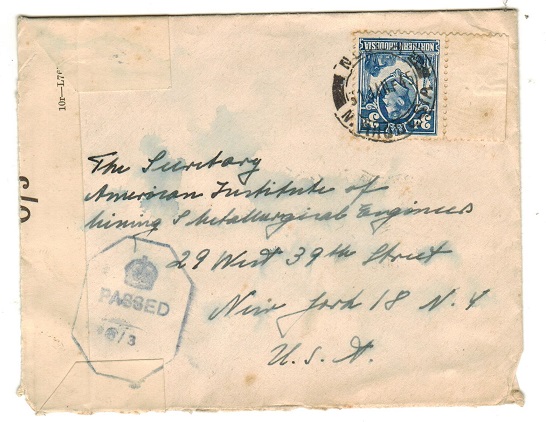 10r—L76
NORTHERN RHODESIA
3d
N. RHODESIA
The Secretary
American Institute of
Mining & Metallurgical Engineers
29 West 39th Street
New York 18 N.Y
U.S.A.
PASSED
/3